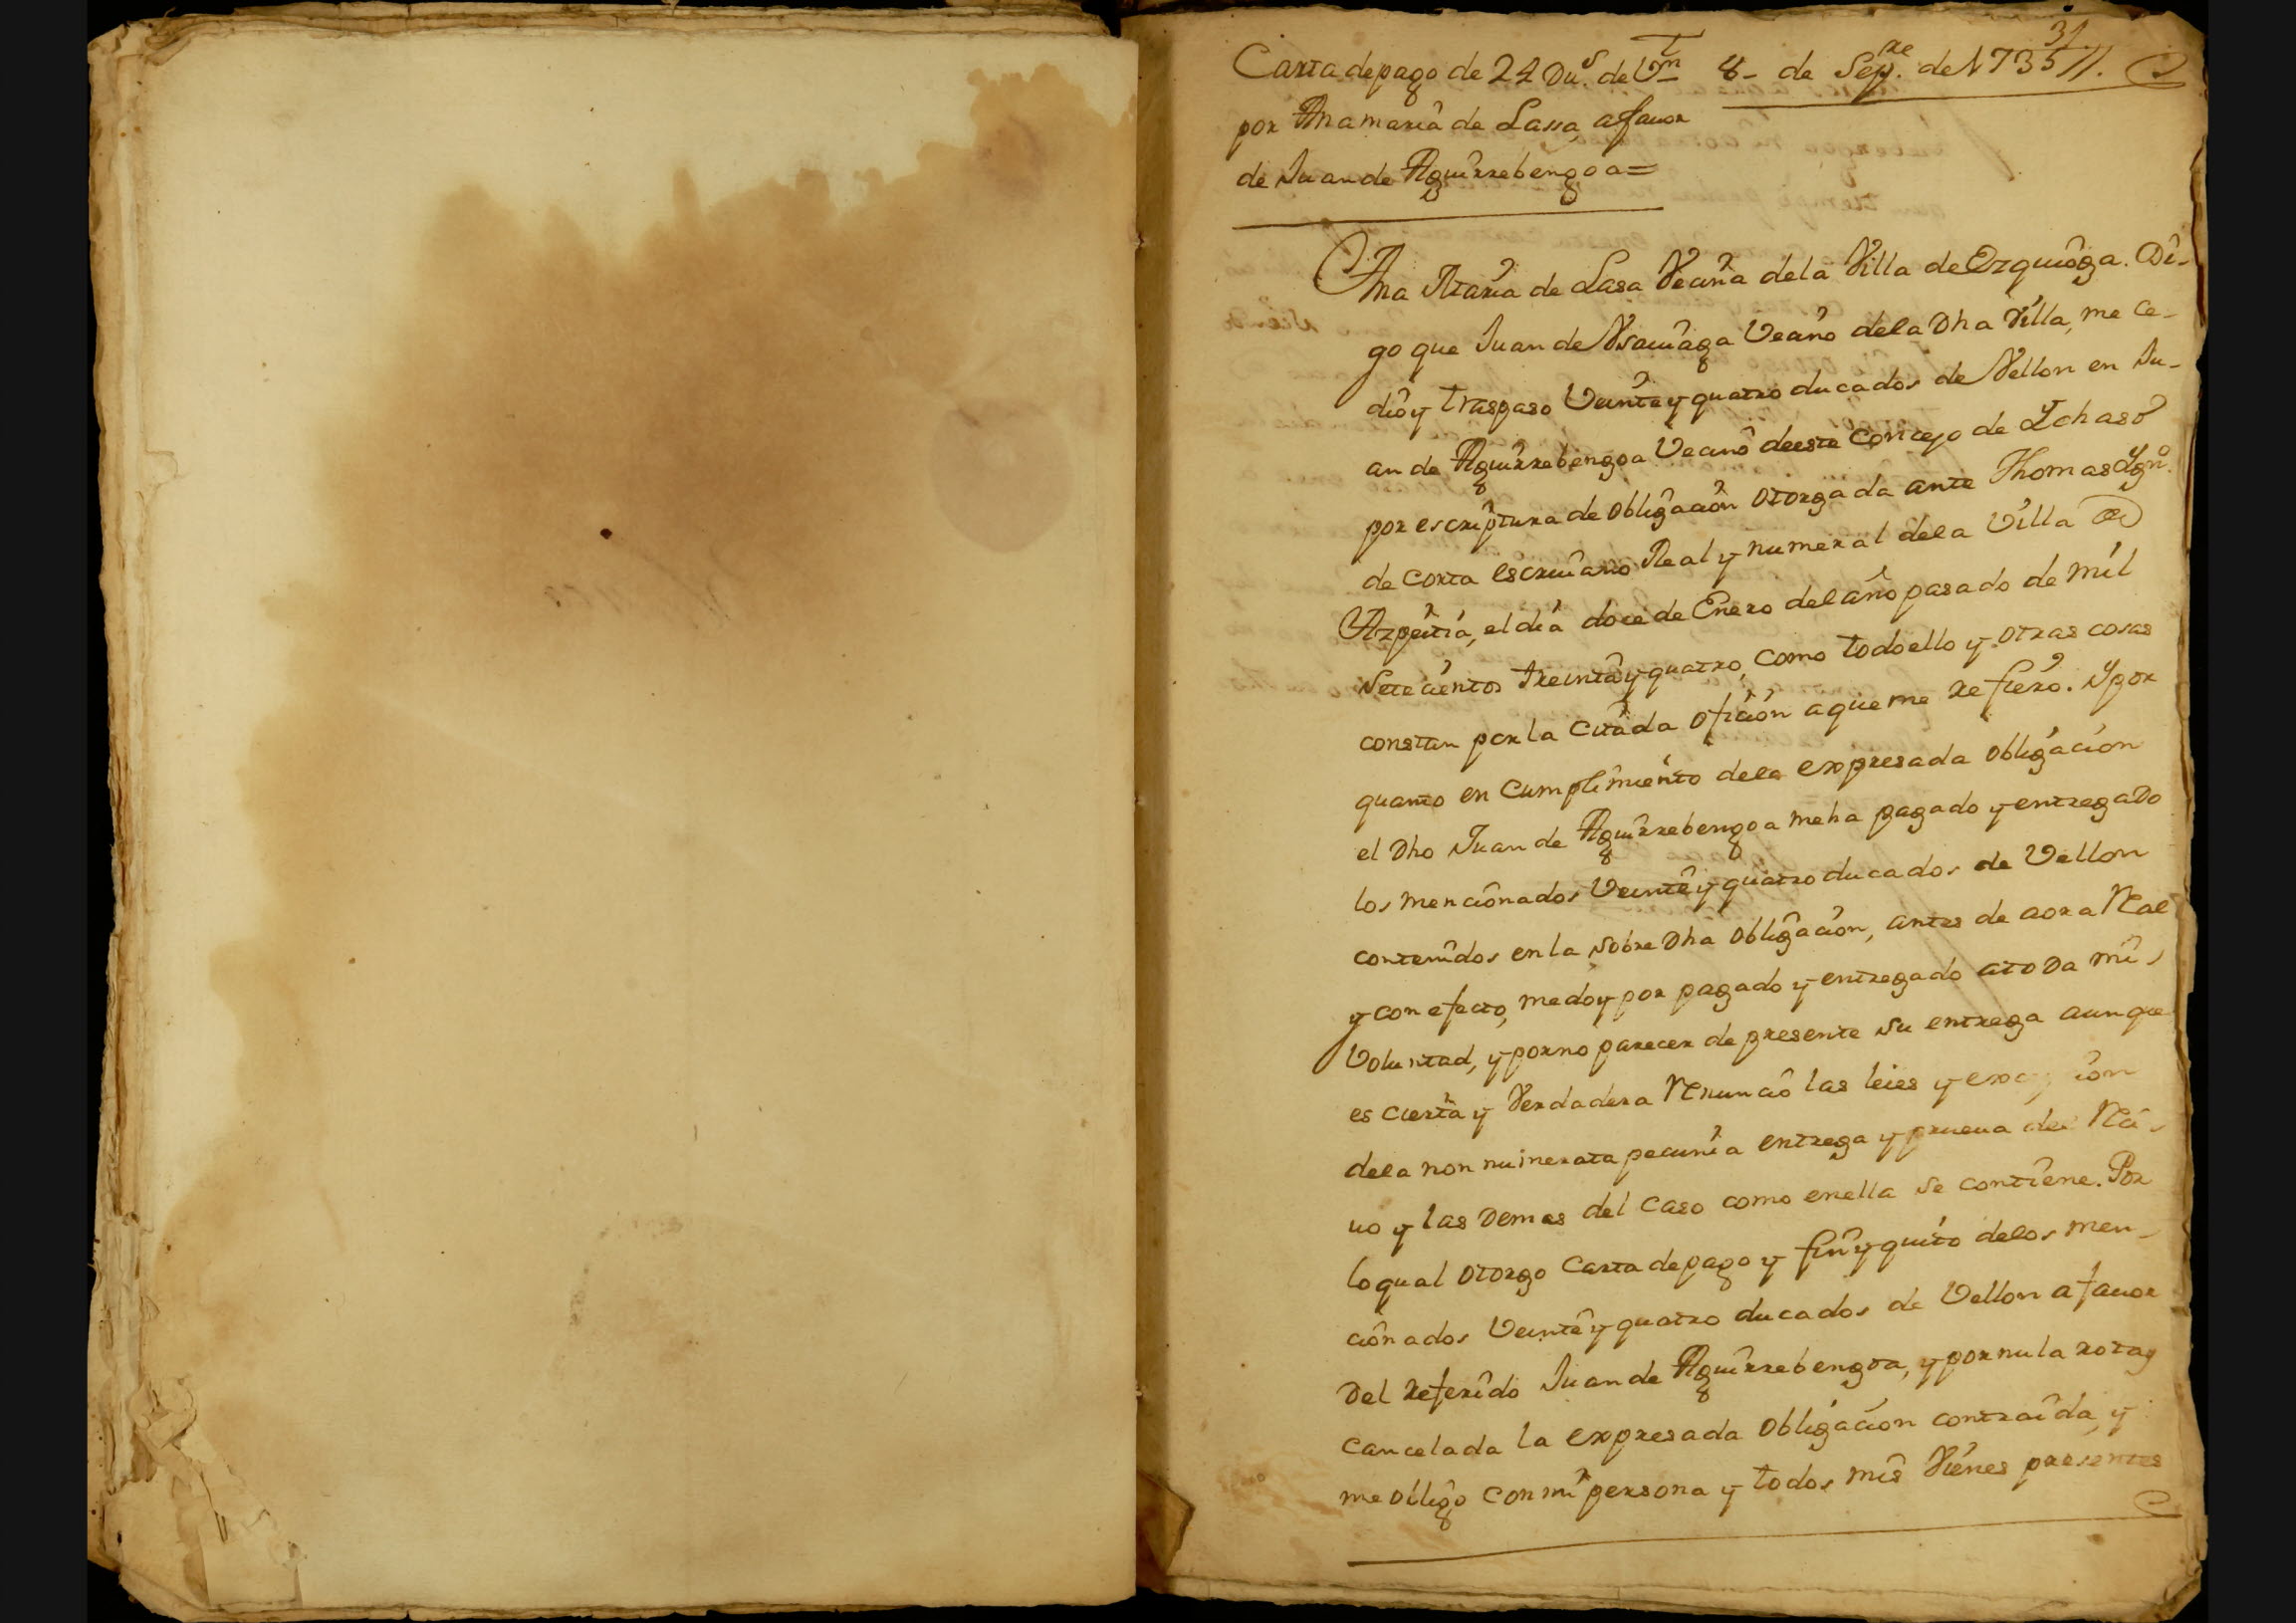 31
Carta de pago de 24 Du.s de Vm 8 de Sepre de 1735 //.
por Anamaria de Lassa, a fauor
de Juan de Aguirrebengoa =
Ana Maria de Lasa Vecina dela Villa de Ezquioga. Di-
go que Juan de Vsauiaga Vecino dela Dha Villa, me ce-
dio y traspaso Veinte y quatro ducados de Vellon en Ju-
an de Aguirrebengoa Vecino deeste Concejo de Ychaso
por escriptura de obligacion otorgada ante Thomas Ygn.o
de corta escriuano Real y numeral dela Villa de
Azpeitia, el dia doce de Enero del año pasado de mil
Setecientos treinta y quatro, como todo ello y otras cosas
constan por la Citada oficion aque me refiero. Y por
quanto en Cumplimiento dela expresada obligacion
el Dho Juan de Aguirrebengoa me ha pagado y entregado
los mencionados Veinte y quatro ducados de Vellon
contenidos en la sobre Dha obligacion, antes de aora Real
y con efecto, me doy por pagado y entregado atoda mi
Voluntad, y por no parecer de presente su entrega aunque
es cierta y Verdadera Renuncio las leies y excepcion
dela non numerata pecunia entrega y prueua de Re-
uo y las Demas del Caso como en ella se contiene. Por
lo qual otorgo Carta de pago y fin y quito delos men-
cionados Veinte y quatro ducados de Vellon a fauor
Del referido Juan de Aguirrebengoa, y por nula rota y
cancelada la expresada obligacion contraida, y
me obligo con mi persona y todos mis Vienes presentes